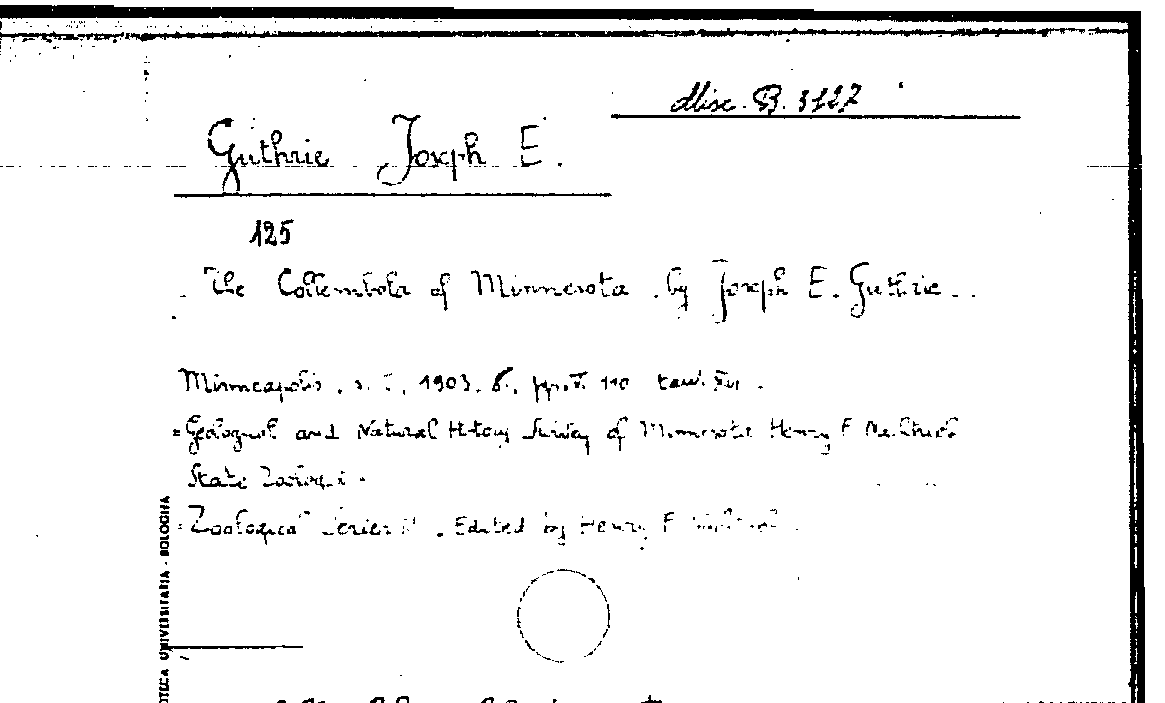 Misc. B. 3127
Guthrie Joseph E.
125
The Collembola of Minnesota by Joseph E. Guthrie
Minneapolis, s. t., 1903. 8., pp. 110 tav.
Geological and Natural History Survey of Minnesota Henry F
State Zoologist
Zoological Series II. Edited by Henry F
UNIVERSITARIA - BOLOGNA